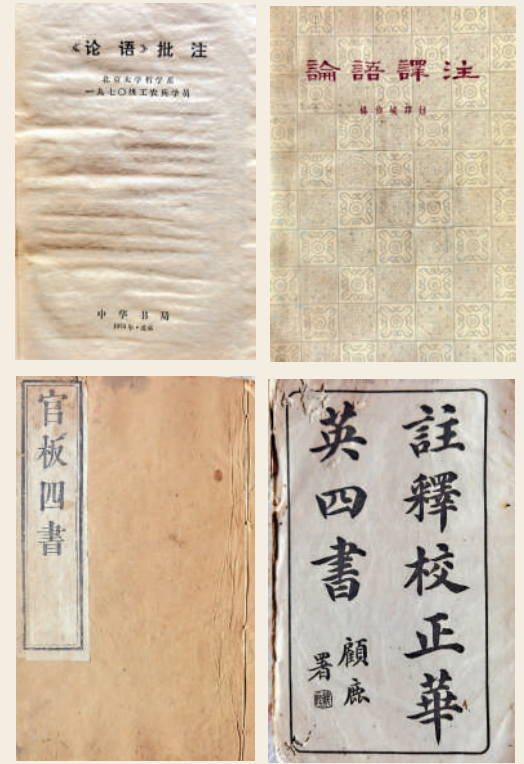 《论语》批注
北京大学哲学系
一九七〇级工农兵学员
中华书局
1974年·北京
論語譯注
楊伯峻譯注
官板四書
註釋校正華
英四書
顧鹿
署